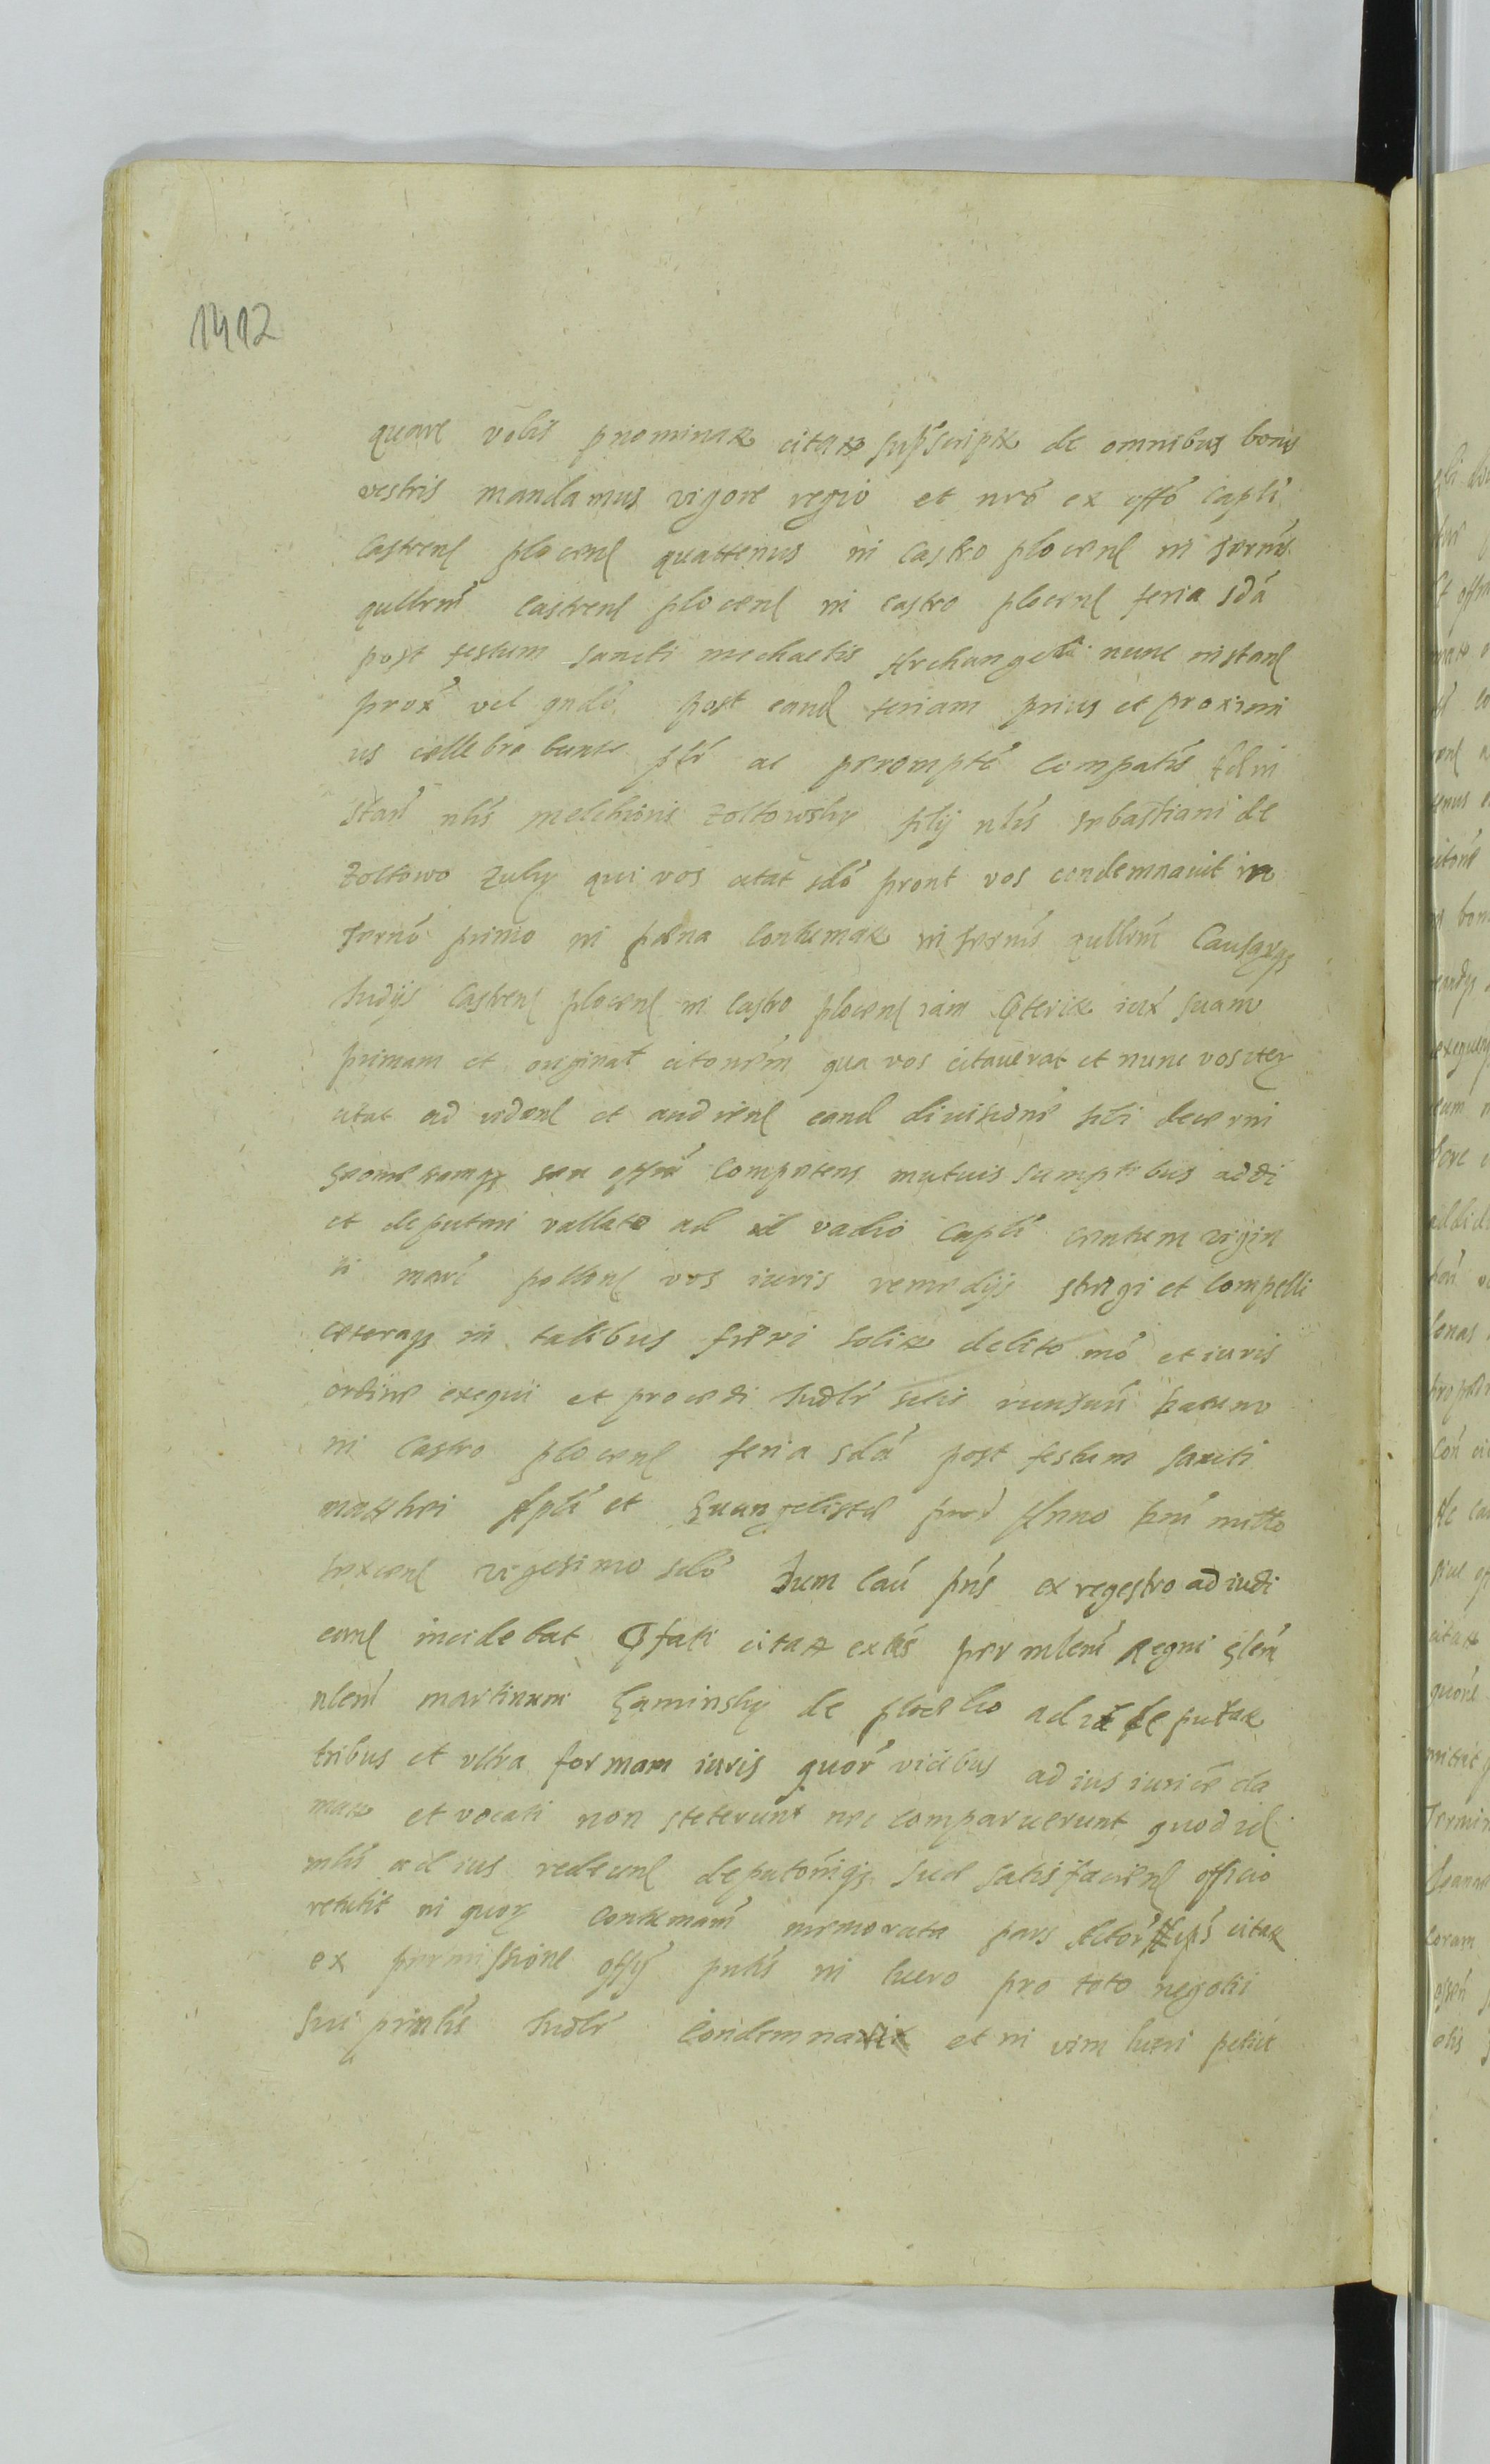 1412
quare vobis pnominatis citatis supscriptis de omnibus bonis
vestris mandamus vigore regio et nro ex offo Capli
Castren plocen quattenus in Castro plocen in termis
qullrm castren plocen in castro plocen feria sda
post festum sancti michaelis Archangeli nunc instan
prox vel qndo post eand feriam prius et proximi
us cellebrabunt pltr ac peremptē compatis ad in
stan nlis melchioris zoltowsky filij nlis sebastiani de
zoltowo zuly qui vos citat ido prout vos condemnavit in
termo primo in pœna contumat in termis qullrm Causarqz
Judijs Castren plocen in Castro plocen iam pteritis iux suam
primam et original citonem qua vos citaverat et nunc vos iter
citat ad viden et audien eand divisione sibi decerni
geometramqz seu offm competens mutuis sumptibus addi
et deputari vallate ad id vadio Capli centum vigin
ti marc pollen vos iuris remedijs stringi et compelli
ceteraqz in talibus fieri solita debito mo et iuris
ordine exequi et procedi Judlr sitis runsuri Datum
in Castro plocen feria sda post festum sancti
matthei Apli et Evangelistæ prox Anno Dni mitto
sexcen vigesimo sdo Dum cau pns ex regestro ad iudi
can incidebat pfati citati extes per mlem Regni glem
nlem martinum Kaminsky de plocko ad id deputat
tribus et vltra formam iuris quor vicibus ad ius iurice cla
mati et vocati non steterunt nec comparuerunt quod id
mlis ad ius redeun deputoniqz suæ satisfacien officio
retulit in quor contumam memorata pars Actor ipos citat
ex permissione offy pntis in lucro pro toto negotii
sui printis Judlr Condemnavit et in vim lucri petiit